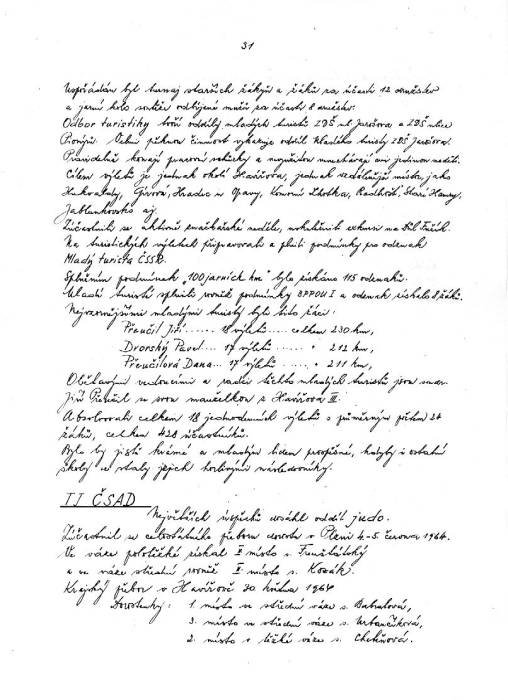 31
Uspořádán byl turnaj starších žákyň a žáků za účasti 12 družstev
a jarní kolo soutěže odbíjené mužů za účasti 8 družstev.
Odbor turistiky tvoří oddíly mladých turistů ZDŠ ul. Jarošova a ZDŠ ulice
Pionýrů. Velmi pěknou činnost vykazuje oddíl Mladého turisty ZDŠ Jarošova.
Pravidelně konají pracovní schůzky a nejméně
Cílem výletů je jednak okolí Havířova, jednak vzdálenější místa, jako
Hukvaldy, Girová, Hradec u Opavy, Komorní Lhotka, Radhošť, Staré Hamry,
Jablunkovsko aj.
Zúčastnili se aktivně značkařské neděle, uskutečnili exkursi na Důl Fučík.
Na turistických výletech připravovali a plnili podmínky pro odznak
Mladý turista ČSSR.
Splněním podmínek "100 jarních km" bylo získáno 115 odznaků.
Mladší turisté splnili rovněž podmínky BPPOV I a odznak získalo 8 žáků.
Nejvzornějšími mladými turisty byli tito žáci:
Přeučil Jiří...... 18 výletů .... celkem 230 km,
Dvorský Pavel... 17 výletů ..... " 212 km,
Přeučilová Dana... 17 výletů ..... " 211 km,
Obětavými vedoucími a rádci těchto mladých turistů jsou
Jiří Přeučil se svou manželkou z Havířova III.
Absolvovali celkem 18 jednodenních výletů s průměrným počtem 24
žáků, celkem 428 účastníků.
Bylo by jistě krásné a mladým lidem prospěšné, kdyby i ostatní
školy se staly jejich horlivými následovníky.
TJ ČSAD
Největších úspěchů dosáhl oddíl judo.
Zúčastnil se celostátního přeboru dorostu v Plzni 4.-5. června 1964.
Ve váze polotěžké získal I místo s. Frenštátský
a ve váze střední rovněž I místo s. Kozák.
Krajský přebor v Havířově 30 května 1964
Dorostenky: 1. místo ve střední váze s. Babralová,
3. místo ve střední váze s. Urbančíková,
2. místo v těžké váze s. Chobňová.